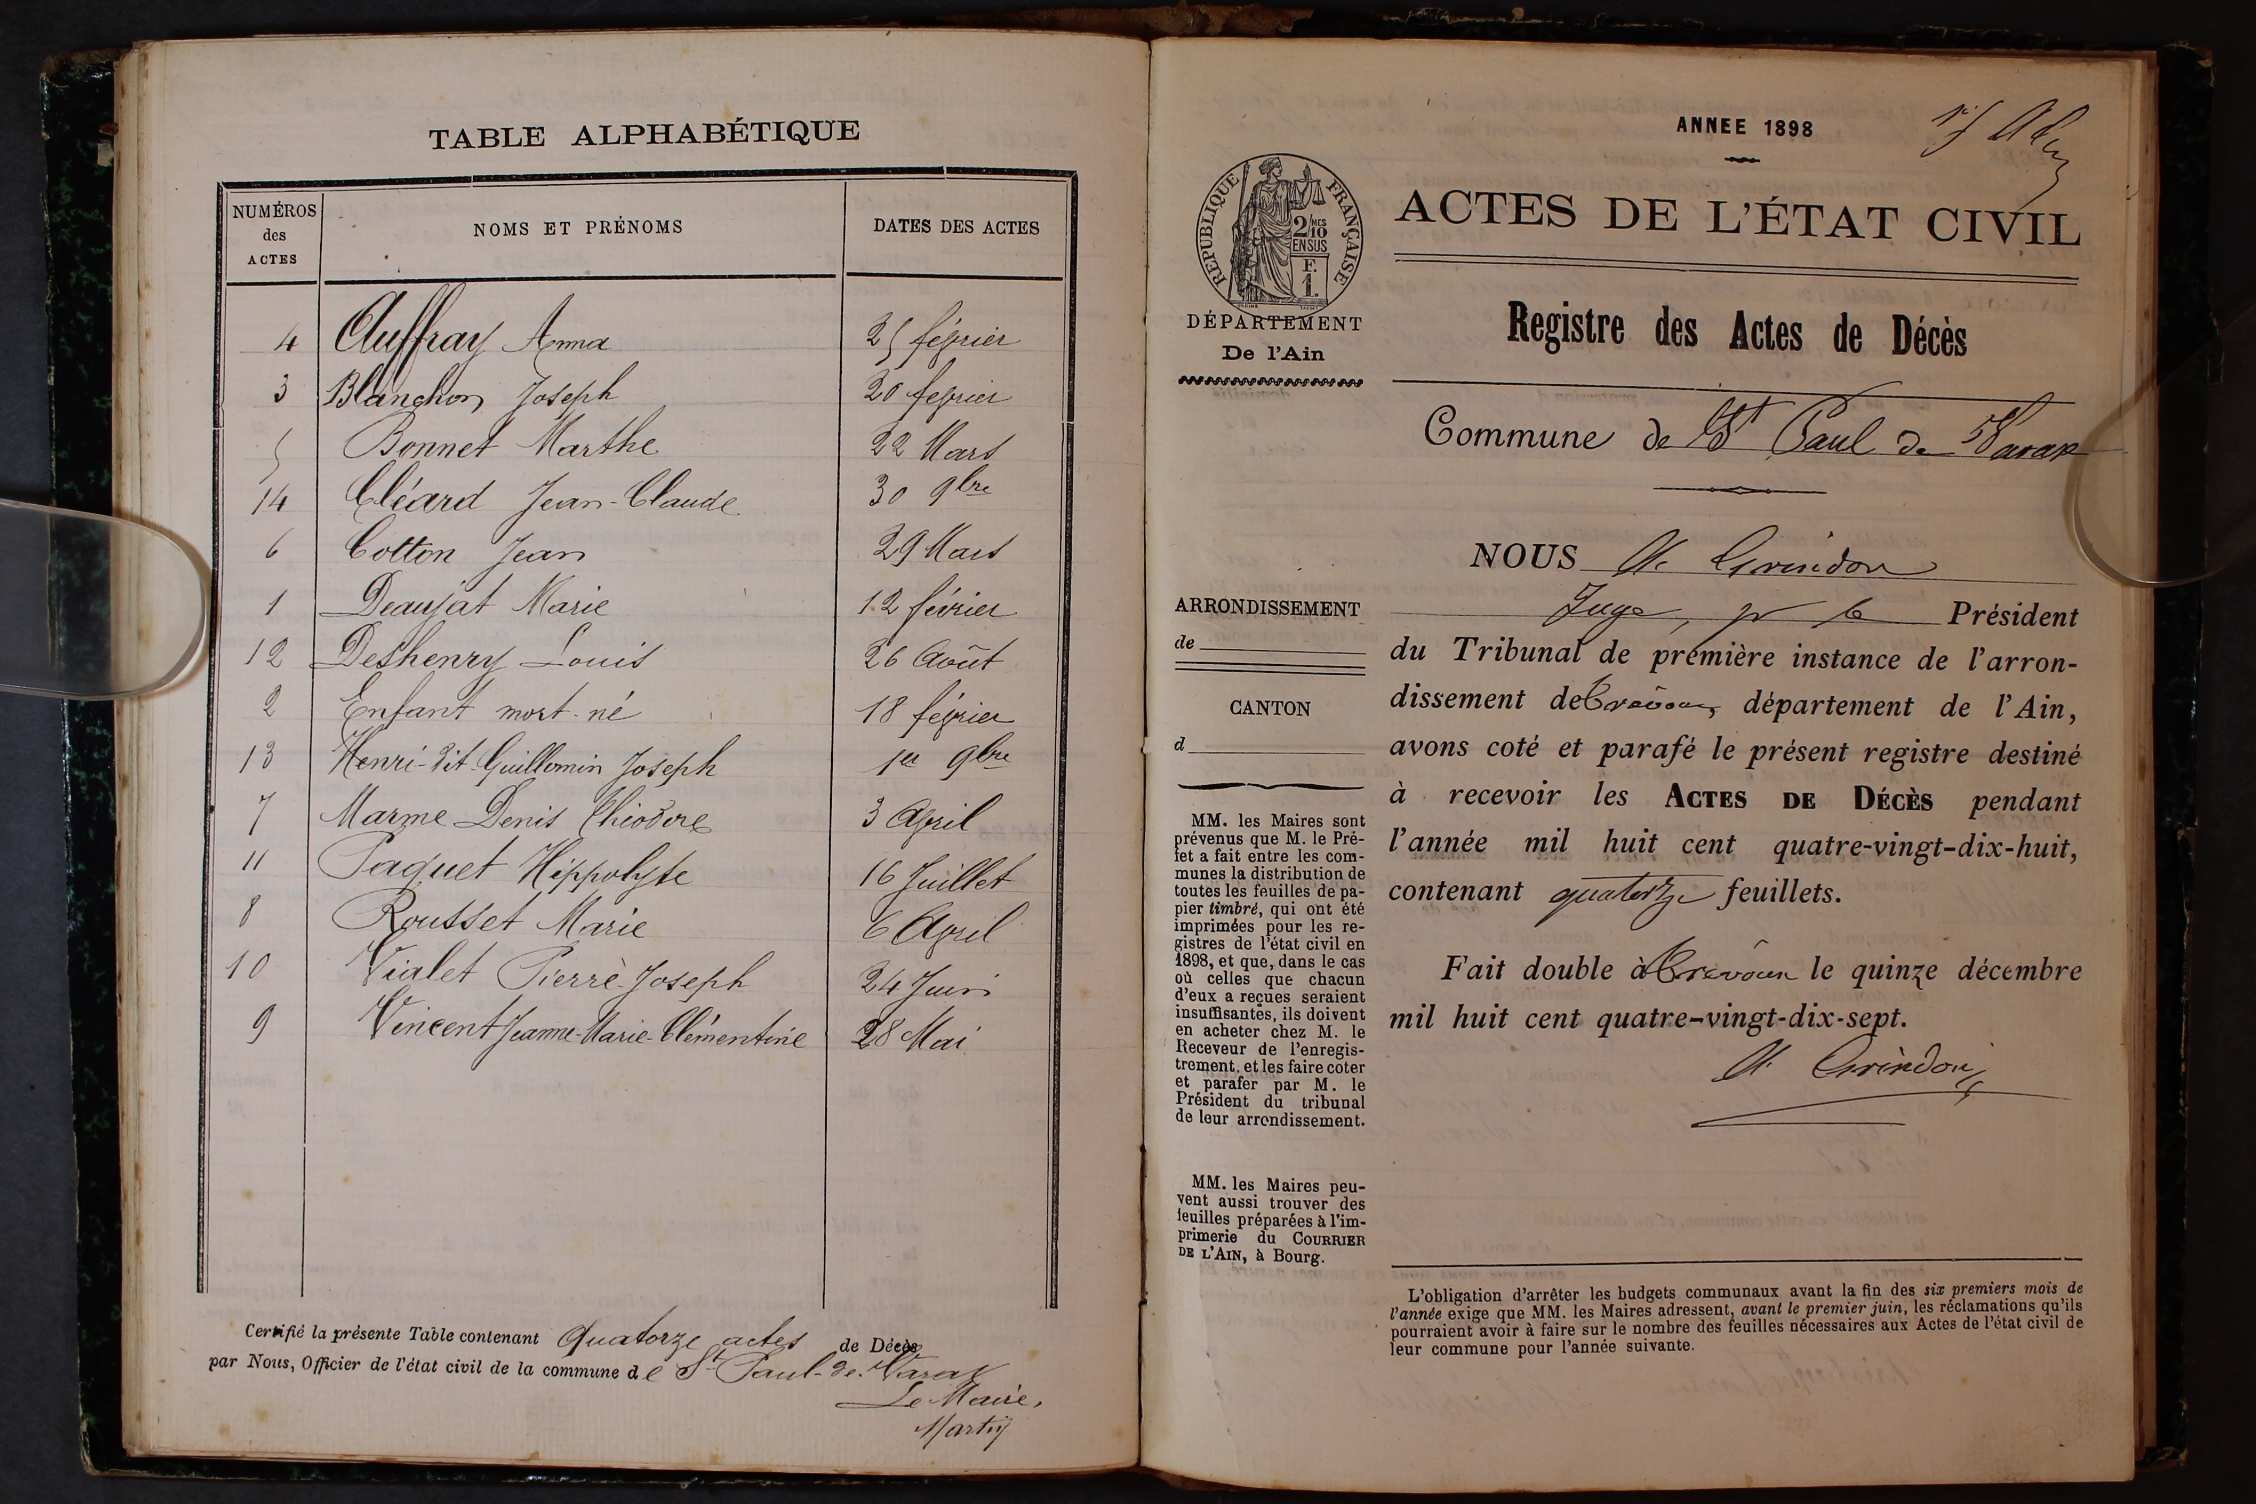 TABLE ALPHABÉTIQUE
NUMÉROS des ACTES | NOMS ET PRÉNOMS | DATES DES ACTES
4 Auffray Anna 25 février
3 Blanchon Joseph 20 février
5 Bonnet Marthe 22 Mars
14 Cléard Jean-Claude 30 9bre
6 Cotton Jean 29 Mars
1 Deaujat Marie 12 février
12 Deshenry Louis 26 Août
2 Enfant mort-né 18 février
13 Henri-dit-Guillomin Joseph 1er 9bre
7 Marme Denis Théodore 3 Avril
11 Paquet Hippolyte 16 Juillet
8 Rousset Marie 6 Avril
10 Vialet Pierre-Joseph 24 Juin
9 Vincent Jeanne-Marie-Clémentine 28 Mai
Certifié la présente Table contenant Quatorze actes de Décès
par Nous, Officier de l'état civil de la commune de St Paul-de-Varax
Le Maire,
ANNEE 1898
RÉPUBLIQUE FRANÇAISE
2/10 MES
EN SUS
F.
1.
DÉPARTEMENT
De l'Ain
ARRONDISSEMENT
de
CANTON
d
MM. les Maires sont
prévenus que M. le Pré-
fet a fait entre les com-
munes la distribution de
toutes les feuilles de pa-
pier timbré, qui ont été
imprimées pour les re-
gistres de l'état civil en
1898, et que, dans le cas
où celles que chacun
d'eux a reçues seraient
insuffisantes, ils doivent
en acheter chez M. le
Receveur de l'enregis-
trement, et les faire coter
et parafer par M. le
Président du tribunal
de leur arrondissement.
MM. les Maires peu-
vent aussi trouver des
feuilles préparées à l'im-
primerie du COURRIER
DE L'AIN, à Bourg.
ACTES DE L'ÉTAT CIVIL
Registre des Actes de Décès
Commune de St Paul de Varax
NOUS M. Grindon
Juge, pr le Président
du Tribunal de première instance de l'arron-
dissement de Trévoux, département de l'Ain,
avons coté et parafé le présent registre destiné
à recevoir les ACTES DE DÉCÈS pendant
l'année mil huit cent quatre-vingt-dix-huit,
contenant quatorze feuillets.
Fait double à Trévoux le quinze décembre
mil huit cent quatre-vingt-dix-sept.
M. Grindon
L'obligation d'arrêter les budgets communaux avant la fin des six premiers mois de
l'année exige que MM. les Maires adressent, avant le premier juin, les réclamations qu'ils
pourraient avoir à faire sur le nombre des feuilles nécessaires aux Actes de l'état civil de
leur commune pour l'année suivante.